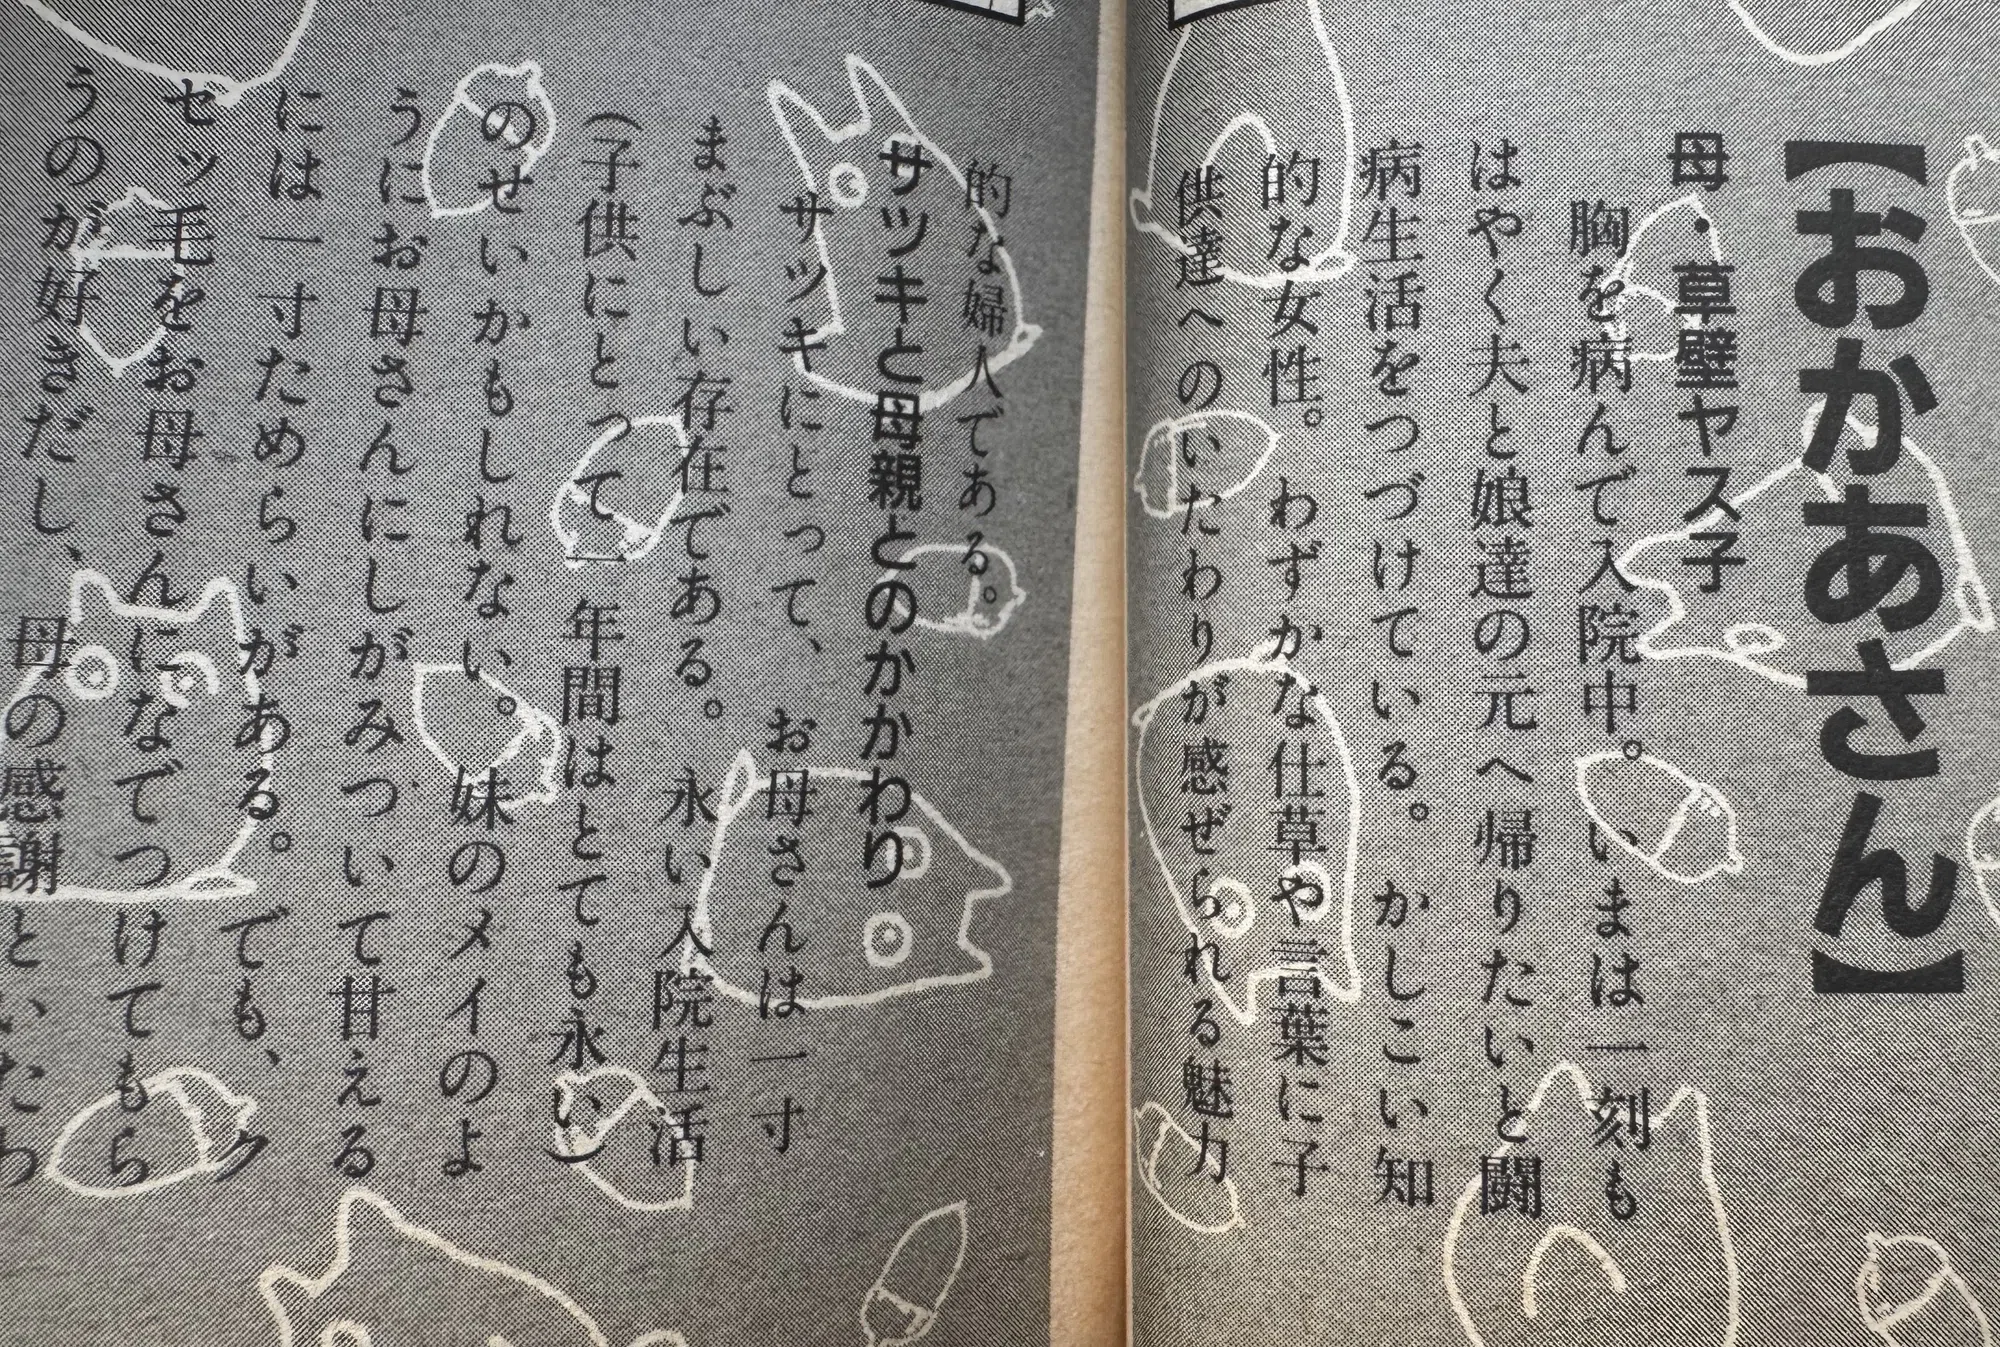 【おかあさん】
母・草壁ヤス子
胸を病んで入院中。いまは一刻も
はやく夫と娘達の元へ帰りたいと闘
病生活をつづけている。かしこい知
的な女性。わずかな仕草や言葉に子
供達へのいたわりが感ぜられる魅力
的な婦人である。
サツキと母親とのかかわり
サツキにとって、お母さんは一寸
まぶしい存在である。永い入院生活
(子供にとって一年間はとても永い)
のせいかもしれない。妹のメイのよ
うにお母さんにしがみついて甘える
には一寸ためらいがある。でも、ク
セッ毛をお母さんになでつけてもら
うのが好きだし、母の感謝といたわ